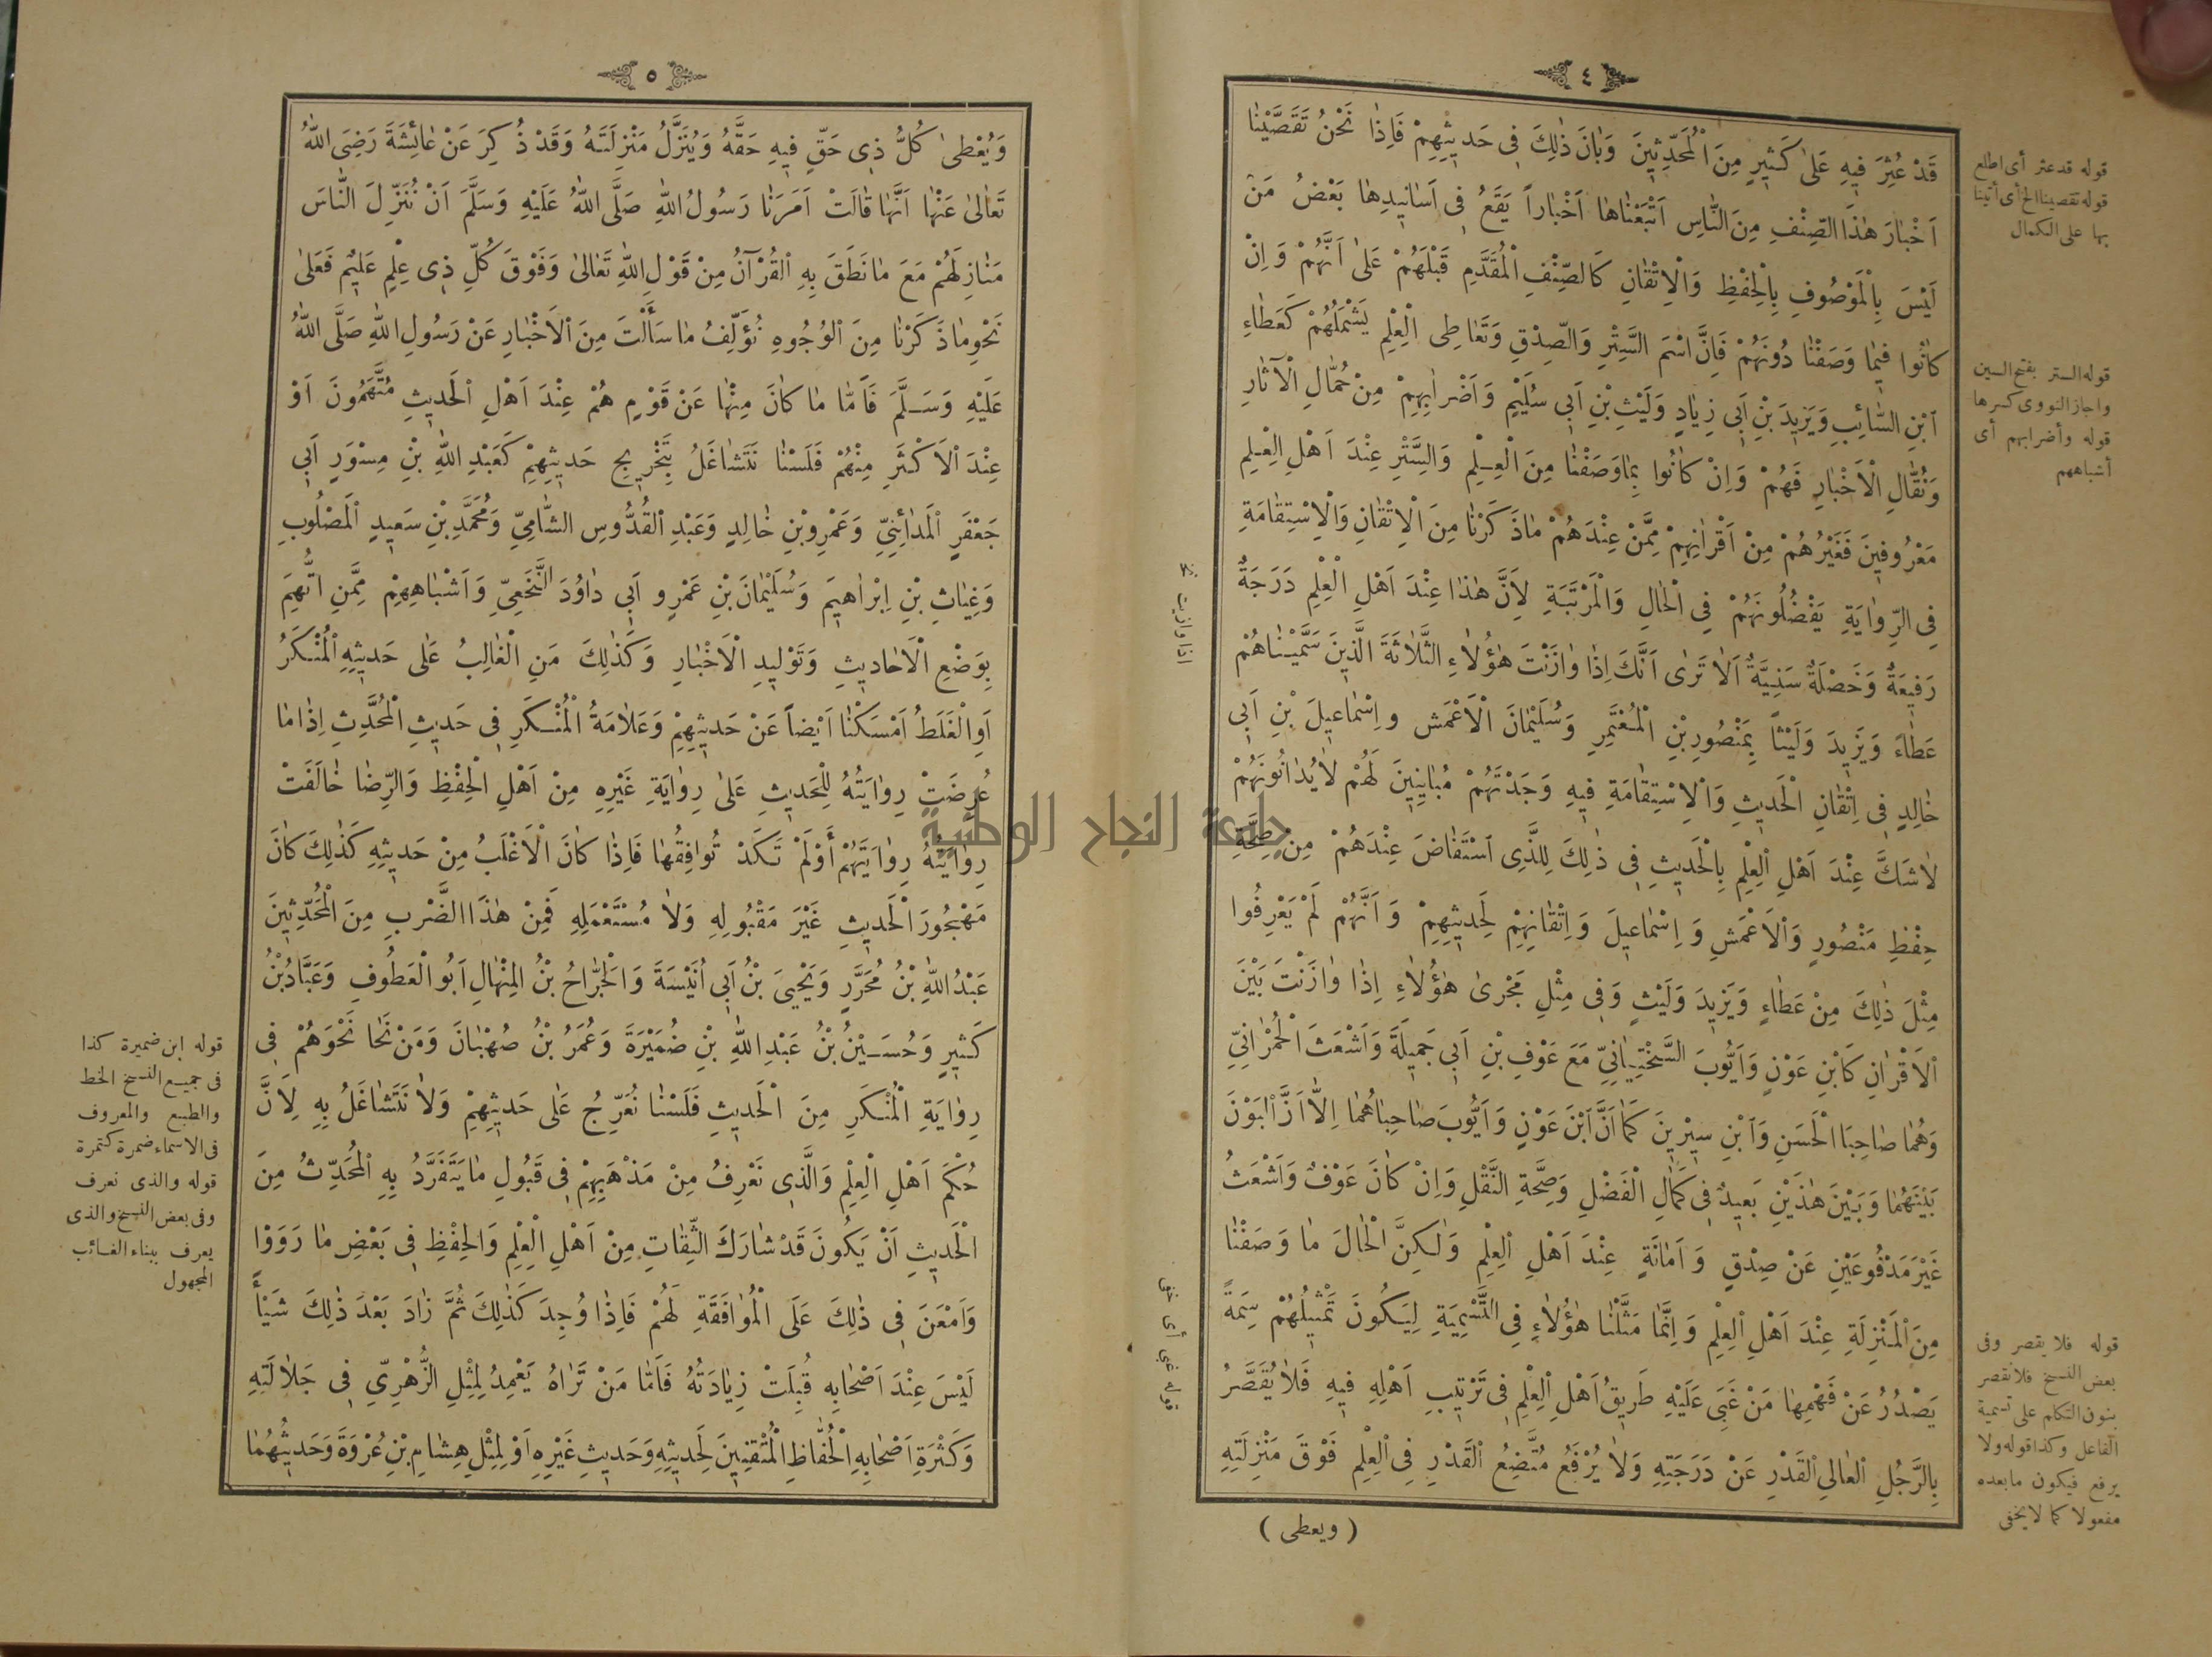 ٤
قَدْ عُثِرَ فِيهِ عَلىٰ كَثِيرٍ مِنَ الْمُحَدِّثِينَ وَبٰانَ ذٰلِكَ فِى حَدِيثِهِمْ فَاِذٰا نَحْنُ تَقَصَّيْنٰا
اَخْبٰارَ هٰذَا الصِّنْفِ مِنَ النّٰاسِ اَتْبَعْنٰاهٰا اَخْبٰاراً يَقَعُ فِى اَسٰانِيدِهٰا بَعْضُ مَنْ
لَيْسَ بِالْمَوْصُوفِ بِالْحِفْظِ وَالْاِتْقٰانِ كَالصِّنْفِ الْمُقَدَّمِ قَبْلَهُمْ عَلىٰ اَنَّهُمْ وَاِنْ
كٰانُوا فِيمٰا وَصَفْنٰا دُونَهُمْ فَاِنَّ اسْمَ السَّتْرِ وَالصِّدْقِ وَتَعٰاطِى الْعِلْمِ يَشْمَلُهُمْ كَعَطٰاءِ
ابْنِ السّٰائِبِ وَيَزِيدَ بْنِ اَبِى زِيٰادٍ وَلَيْثِ بْنِ اَبِى سُلَيْمٍ وَاَضْرٰابِهِمْ مِنْ حُمّٰالِ الْآثٰارِ
وَنُقّٰالِ الْاَخْبٰارِ فَهُمْ وَاِنْ كٰانُوا بِمٰا وَصَفْنٰا مِنَ الْعِلْمِ وَالسِّتْرِ عِنْدَ اَهْلِ الْعِلْمِ
مَعْرُوفِينَ فَغَيْرُهُمْ مِنْ اَقْرٰانِهِمْ مِمَّنْ عِنْدَهُمْ مٰاذَكَرْنٰا مِنَ الْاِتْقٰانِ وَالْاِسْتِقٰامَةِ
فِى الرِّوٰايَةِ يَفْضُلُونَهُمْ فِى الْحٰالِ وَالْمَرْتَبَةِ لِاَنَّ هٰذٰا عِنْدَ اَهْلِ الْعِلْمِ دَرَجَةٌ
رَفِيعَةٌ وَخَصْلَةٌ سَنِيَّةٌ اَلٰا تَرٰى اَنَّكَ اِذٰا وٰازَنْتَ هٰؤُلٰاءِ الثَّلٰاثَةَ الَّذِينَ سَمَّيْنٰاهُمْ
عَطٰاءً وَيَزِيدَ وَلَيْثاً بِمَنْصُورِ بْنِ الْمُعْتَمِرِ وَسُلَيْمٰانَ الْاَعْمَشِ وَاِسْمٰاعِيلَ بْنِ اَبِى
خٰالِدٍ فِى اِتْقٰانِ الْحَدِيثِ وَالْاِسْتِقٰامَةِ فِيهِ وَجَدْتَهُمْ مُبٰايِنِينَ لَهُمْ لٰا يُدٰانُونَهُمْ
لٰاشَكَّ عِنْدَ اَهْلِ الْعِلْمِ بِالْحَدِيثِ فِى ذٰلِكَ لِلَّذِى اسْتَفٰاضَ عِنْدَهُمْ مِنْ صِحَّةِ
حِفْظِ مَنْصُورٍ وَالْاَعْمَشِ وَاِسْمٰاعِيلَ وَاِتْقٰانِهِمْ لِحَدِيثِهِمْ وَاَنَّهُمْ لَمْ يَعْرِفُوا
مِثْلَ ذٰلِكَ مِنْ عَطٰاءٍ وَيَزِيدَ وَلَيْثٍ وَفِى مِثْلِ مَجْرىٰ هٰؤُلٰاءِ اِذٰا وٰازَنْتَ بَيْنَ
الْاَقْرٰانِ كَابْنِ عَوْنٍ وَاَيُّوبَ السَّخْتِيٰانِيِّ مَعَ عَوْفِ بْنِ اَبِى جَمِيلَةَ وَاَشْعَثَ الْحُمْرٰانِيِّ
وَهُمٰا صٰاحِبَا الْحَسَنِ وَابْنِ سِيرِينَ كَمٰا اَنَّ ابْنَ عَوْنٍ وَاَيُّوبَ صٰاحِبٰاهُمٰا اِلّٰا اَنَّ الْبَوْنَ
بَيْنَهُمٰا وَبَيْنَ هٰذَيْنِ بَعِيدٌ فِى كَمٰالِ الْفَضْلِ وَصِحَّةِ النَّقْلِ وَاِنْ كٰانَ عَوْفٌ وَاَشْعَثُ
غَيْرَ مَدْفُوعَيْنِ عَنْ صِدْقٍ وَاَمٰانَةٍ عِنْدَ اَهْلِ الْعِلْمِ وَلٰكِنَّ الْحٰالَ مٰا وَصَفْنٰا
مِنَ الْمَنْزِلَةِ عِنْدَ اَهْلِ الْعِلْمِ وَاِنَّمٰا مَثَّلْنٰا هٰؤُلٰاءِ فِى التَّسْمِيَةِ لِيَكُونَ تَمْثِيلُهُمْ سِمَةً
يَصْدُرُ عَنْ فَهْمِهٰا مَنْ غَبِىَ عَلَيْهِ طَرِيقُ اَهْلِ الْعِلْمِ فِى تَرْتِيبِ اَهْلِهِ فِيهِ فَلٰا يُقَصَّرُ
بِالرَّجُلِ الْعٰالِى الْقَدْرِ عَنْ دَرَجَتِهِ وَلٰا يُرْفَعُ مُتَّضِعُ الْقَدْرِ فِى الْعِلْمِ فَوْقَ مَنْزِلَتِهِ
( ويعطى )
قوله قدعثر أى اطلع
قوله تقصينا الخ أى أتينا
بها على الكمال
قوله الستر بفتح السين
واجاز النووى كسرها
قوله وأضرابهم أى
أشباههم
اذا وازيت نخ
قوله فلا يقصر وفى
بعض النسخ فلا نقصر
بنون التكلم على تسمية
الفاعل وكذا قوله ولا
يرفع فيكون مابعده
مفعولا كما لايخفى
قوله غبى أى خفى
٥
وَيُعْطىٰ كُلُّ ذِى حَقٍّ فِيهِ حَقَّهُ وَيُنَزَّلُ مَنْزِلَتَهُ وَقَدْ ذُكِرَ عَنْ عٰائِشَةَ رَضِىَ اللّٰهُ
تَعٰالىٰ عَنْهٰا اَنَّهٰا قٰالَتْ اَمَرَنٰا رَسُولُ اللّٰهِ صَلَّى اللّٰهُ عَلَيْهِ وَسَلَّمَ اَنْ نُنَزِّلَ النّٰاسَ
مَنٰازِلَهُمْ مَعَ مٰا نَطَقَ بِهِ الْقُرْآنُ مِنْ قَوْلِ اللّٰهِ تَعٰالىٰ وَفَوْقَ كُلِّ ذِى عِلْمٍ عَلِيمٌ فَعَلىٰ
نَحْوِ مٰاذَكَرْنٰا مِنَ الْوُجُوهِ نُؤَلِّفُ مٰا سَأَلْتَ مِنَ الْاَخْبٰارِ عَنْ رَسُولِ اللّٰهِ صَلَّى اللّٰهُ
عَلَيْهِ وَسَلَّمَ فَاَمّٰا مٰا كٰانَ مِنْهٰا عَنْ قَوْمٍ هُمْ عِنْدَ اَهْلِ الْحَدِيثِ مُتَّهَمُونَ اَوْ
عِنْدَ الْاَكْثَرِ مِنْهُمْ فَلَسْنٰا نَتَشٰاغَلُ بِتَخْرِيجِ حَدِيثِهِمْ كَعَبْدِ اللّٰهِ بْنِ مِسْوَرٍ اَبِى
جَعْفَرٍ الْمَدٰائِنِيِّ وَعَمْرِو بْنِ خٰالِدٍ وَعَبْدِ الْقُدُّوسِ الشّٰامِيِّ وَمُحَمَّدِ بْنِ سَعِيدٍ الْمَصْلُوبِ
وَغِيٰاثِ بْنِ اِبْرٰاهِيمَ وَسُلَيْمٰانَ بْنِ عَمْرٍو اَبِى دٰاوُدَ النَّخَعِيِّ وَاَشْبٰاهِهِمْ مِمَّنِ اتُّهِمَ
بِوَضْعِ الْاَحٰادِيثِ وَتَوْلِيدِ الْاَخْبٰارِ وَكَذٰلِكَ مَنِ الْغٰالِبُ عَلٰى حَدِيثِهِ الْمُنْكَرُ
اَوِ الْغَلَطُ اَمْسَكْنٰا اَيْضاً عَنْ حَدِيثِهِمْ وَعَلٰامَةُ الْمُنْكَرِ فِى حَدِيثِ الْمُحَدِّثِ اِذٰا مٰا
عُرِضَتْ رِوٰايَتُهُ لِلْحَدِيثِ عَلىٰ رِوٰايَةِ غَيْرِهِ مِنْ اَهْلِ الْحِفْظِ وَالرِّضٰا خٰالَفَتْ
رِوٰايَتُهُ رِوٰايَتَهُمْ أَوْ لَمْ تَكَدْ تُوٰافِقُهٰا فَاِذٰا كٰانَ الْاَغْلَبُ مِنْ حَدِيثِهِ كَذٰلِكَ كٰانَ
مَهْجُورَ الْحَدِيثِ غَيْرَ مَقْبُولِهِ وَلٰا مُسْتَعْمَلِهِ فَمِنْ هٰذَا الضَّرْبِ مِنَ الْمُحَدِّثِينَ
عَبْدُ اللّٰهِ بْنُ مُحَرَّرٍ وَيَحْيىَ بْنُ اَبِى اُنَيْسَةَ وَالْجَرّٰاحُ بْنُ الْمِنْهٰالِ اَبُو الْعَطُوفِ وَعَبَّادُ بْنُ
كَثِيرٍ وَحُسَيْنُ بْنُ عَبْدِ اللّٰهِ بْنِ ضُمَيْرَةَ وَعُمَرُ بْنُ صُهْبٰانَ وَمَنْ نَحٰا نَحْوَهُمْ فِى
رِوٰايَةِ الْمُنْكَرِ مِنَ الْحَدِيثِ فَلَسْنٰا نُعَرِّجُ عَلٰى حَدِيثِهِمْ وَلٰا نَتَشٰاغَلُ بِهِ لِاَنَّ
حُكْمَ اَهْلِ الْعِلْمِ وَالَّذِى نَعْرِفُ مِنْ مَذْهَبِهِمْ فِى قَبُولِ مٰا يَتَفَرَّدُ بِهِ الْمُحَدِّثُ مِنَ
الْحَدِيثِ اَنْ يَكُونَ قَدْ شٰارَكَ الثِّقٰاتِ مِنْ اَهْلِ الْعِلْمِ وَالْحِفْظِ فِى بَعْضِ مٰا رَوَوْا
وَاَمْعَنَ فِى ذٰلِكَ عَلَى الْمُوٰافَقَةِ لَهُمْ فَاِذٰا وُجِدَ كَذٰلِكَ ثُمَّ زٰادَ بَعْدَ ذٰلِكَ شَيْأً
لَيْسَ عِنْدَ اَصْحٰابِهِ قُبِلَتْ زِيٰادَتُهُ فَاَمّٰا مَنْ تَرٰاهُ يَعْمِدُ لِمِثْلِ الزُّهْرِيِّ فِى جَلٰالَتِهِ
وَكَثْرَةِ اَصْحٰابِهِ الْحُفّٰاظِ الْمُتْقِنِينَ لِحَدِيثِهِ وَحَدِيثِ غَيْرِهِ اَوْ لِمِثْلِ هِشٰامِ بْنِ عُرْوَةَ وَحَدِيثُهُمٰا
قوله ابن ضميرة كذا
فى جميع النسخ الخط
والطبع والمعروف
فى الاسماء ضمرة كتمرة
قوله والذى نعرف
وفى بعض النسخ والذى
يعرف ببناء الغائب
المجهول
جامعة النجاح الوطنية